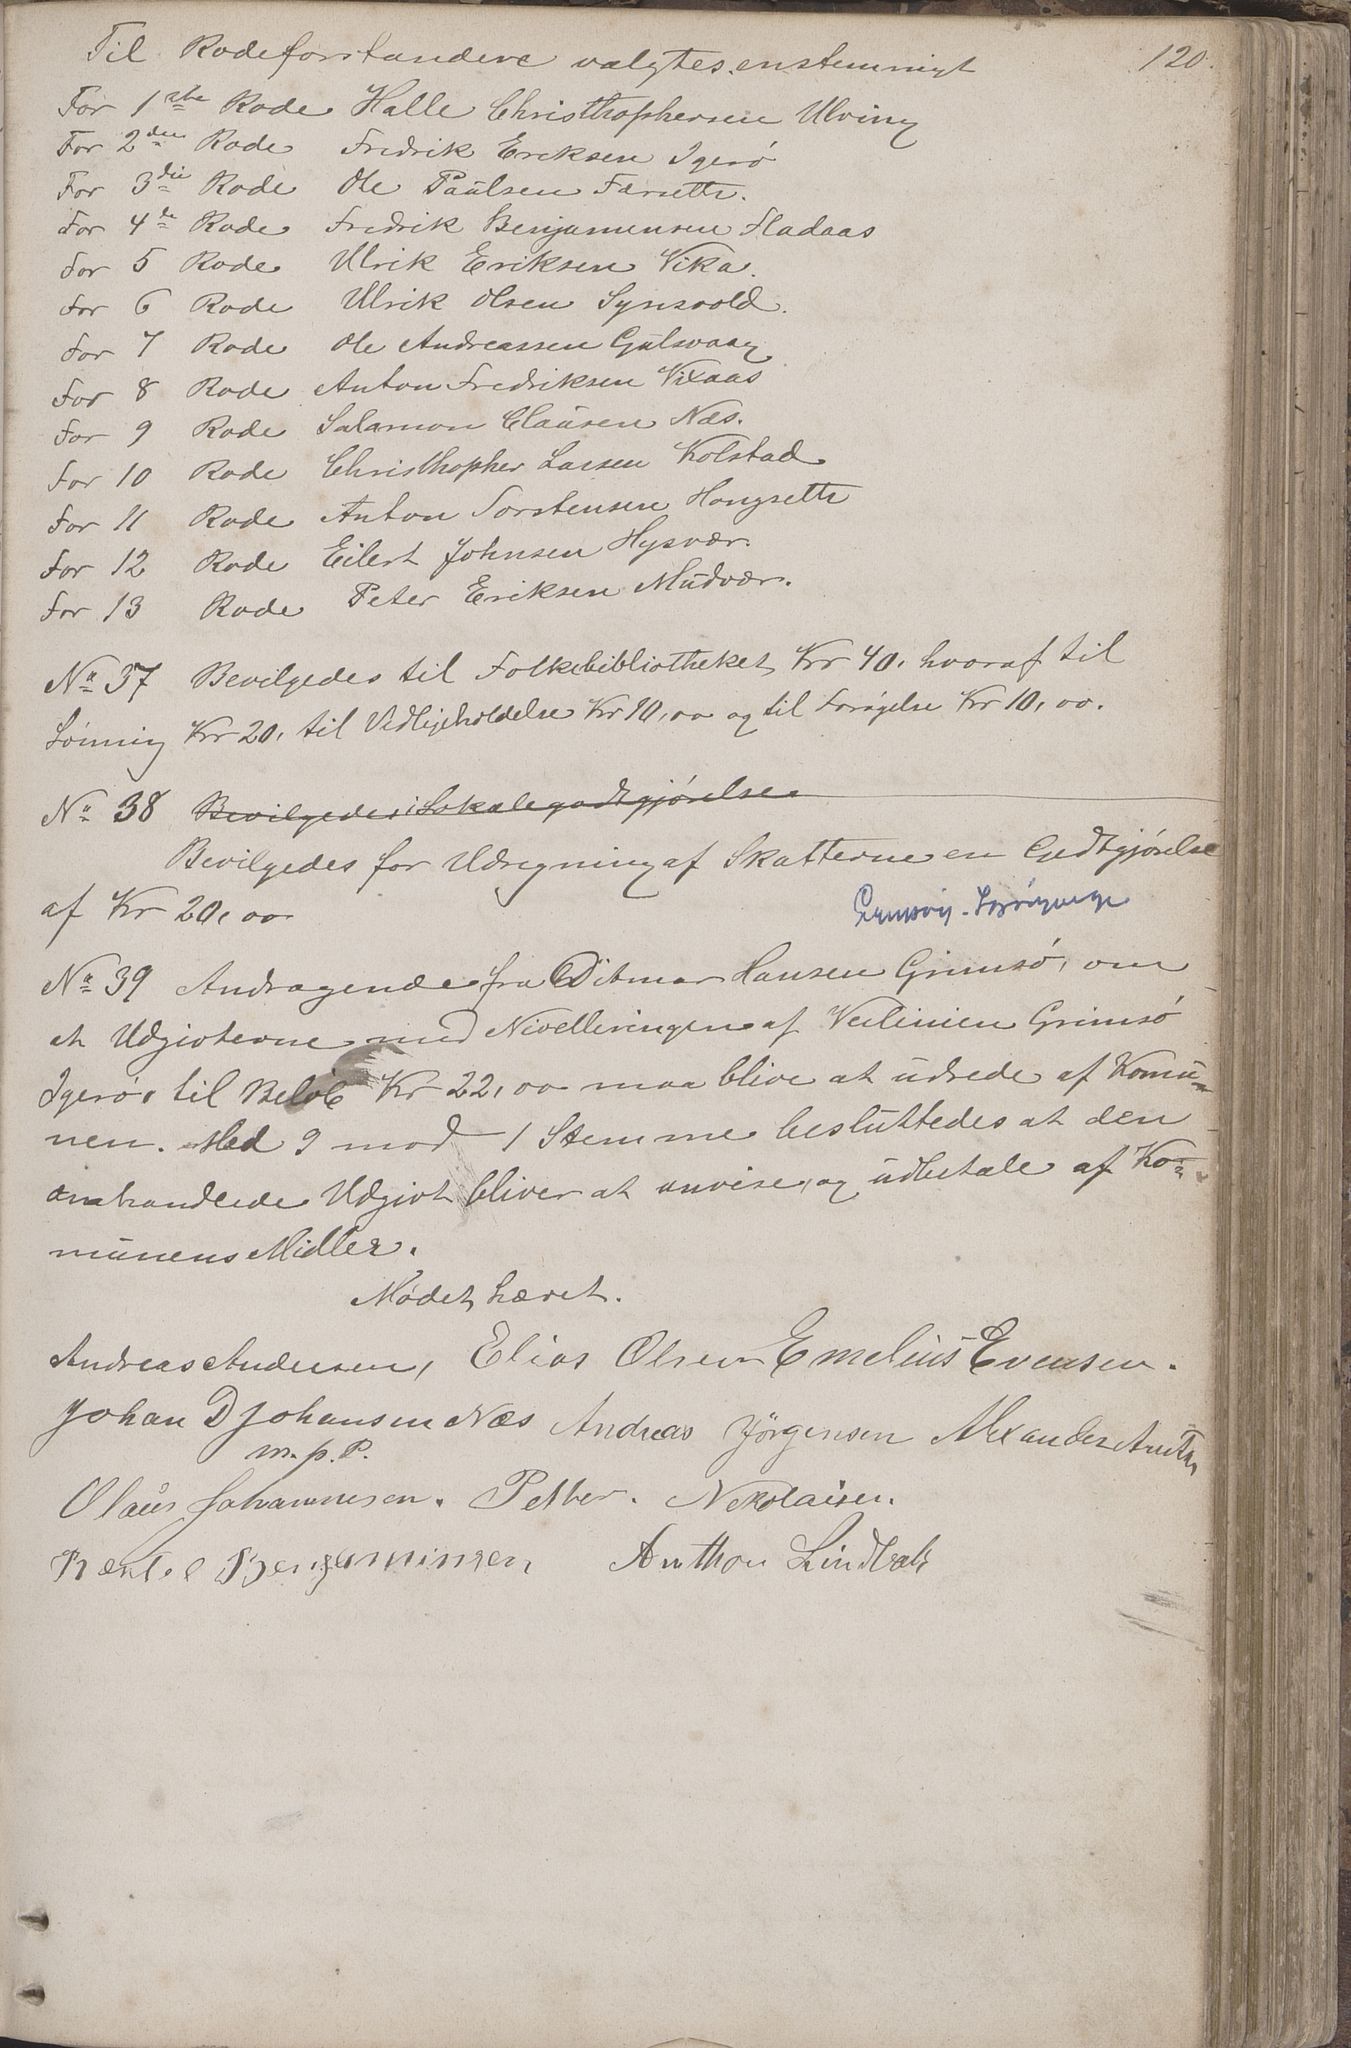 120.
Til Rodeforstandere valgtes enstemmigt
For 1ste Rode Halle Christhophersen Ulving
For 2den Rode Fredrik Ereksen Igerø
For 3die Rode Ole Paulsen Færseth.
For 4de Rode Fredrik Benjamensen Fladaas
For 5 Rode Ulrik Eriksen Vika.
For 6 Rode Ulrik Olsen Synsvold.
For 7 Rode Ole Andreassen Gulsvaag
For 8 Rode Anton Fredriksen Vixaas
For 9 Rode Salamon Clausen Næs.
For 10 Rode Christhopher Larsen Kolstad
For 11 Rode Anton Torstensen Hongseth
For 12 Rode Eilert Johnsen Hysvær.
For 13 Rode Peter Eriksen Mudvær.
No 37 Bevilgedes til Folkebibliotheket Kr 40, hvoraf til
Lønning Kr 20, til Vedligeholdelse Kr 10,00 og til Forøgelse Kr 10,00.
No 38 Bevilgedes i Lokalegodtgjørelse
Bevilgedes for Udregning af Skatterne en Godtgjørelse
af Kr 20,00
No 39 Andragende fra Ditmar Hansen Grimsø, om
at Udgivterne med Nivelleringen af Veilinien Grimsø
Igerø, til Beløb Kr 22,00 maa blive at udrede af Komu-
nen. Med 9 mod 1 Stemme besluttedes at den
omhandlede Udgivt bliver at anvise og udbetale af Ko-
munens Midler.
Mødet hævet.
Andreas Andersen, Elias Olsen Emelius Evensen.
Johan D Johansen Næs Andreas Jörgensen Alexander
m. p. P.
Olaus Johannesen. Petter. Nekolaisen.
Bærtel Benjaminsen Anthon Lindbak